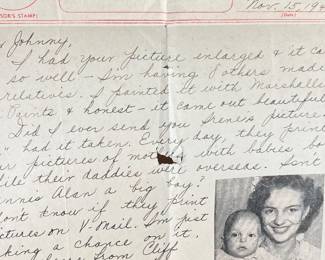 SOR'S STAMP)
Nov. 15, 194
(Date)
Johnny,
I had your picture enlarged & it ca
so well – I'm having 8 others made
relatives. I painted it with Marshalls
Paints & honest – it came out beautiful
Did I ever send you Irene's picture
" had it taken. Every day, they print
pictures of mothers with babies bo
ile their daddies were overseas. Isn't
nnis Alan a big boy?
on't know if they print
ictures on V-Mail. I'm just
king a chance on it.
from Cliff